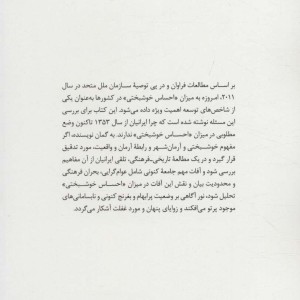 بر اساس مطالعات فراوان و در پی توصیهٔ سازمان ملل متحد در سال
۲۰۱۱، امروزه به میزان «احساس خوشبختی» در کشورها به‌عنوان یکی
از شاخص‌های توسعه اهمیت ویژه داده می‌شود. این کتاب برای بررسی
این مسئله نوشته شده است که چرا ایرانیان از سال ۱۳۵۳ تاکنون وضع
مطلوبی در میزان «احساس خوشبختی» ندارند. به گمان نویسنده، اگر
مفهوم خوشبختی و آرمان‌شهر و رابطهٔ آرمان و واقعیت، مورد تدقیق
قرار گیرد و در یک مطالعهٔ تاریخی-فرهنگی، تلقی ایرانیان از آن مفاهیم
بررسی شود و آفات مهم جامعهٔ کنونی شامل عوام‌گرایی، بحران فرهنگی
و محدودیت بیان و نقش این آفات در میزان «احساس خوشبختی»
تحلیل شود، نور آگاهی بر وضعیت پرابهام و بغرنج کنونی و نابسامانی‌های
موجود پرتو می‌افکند و زوایای پنهان و مورد غفلت آشکار می‌گردد.